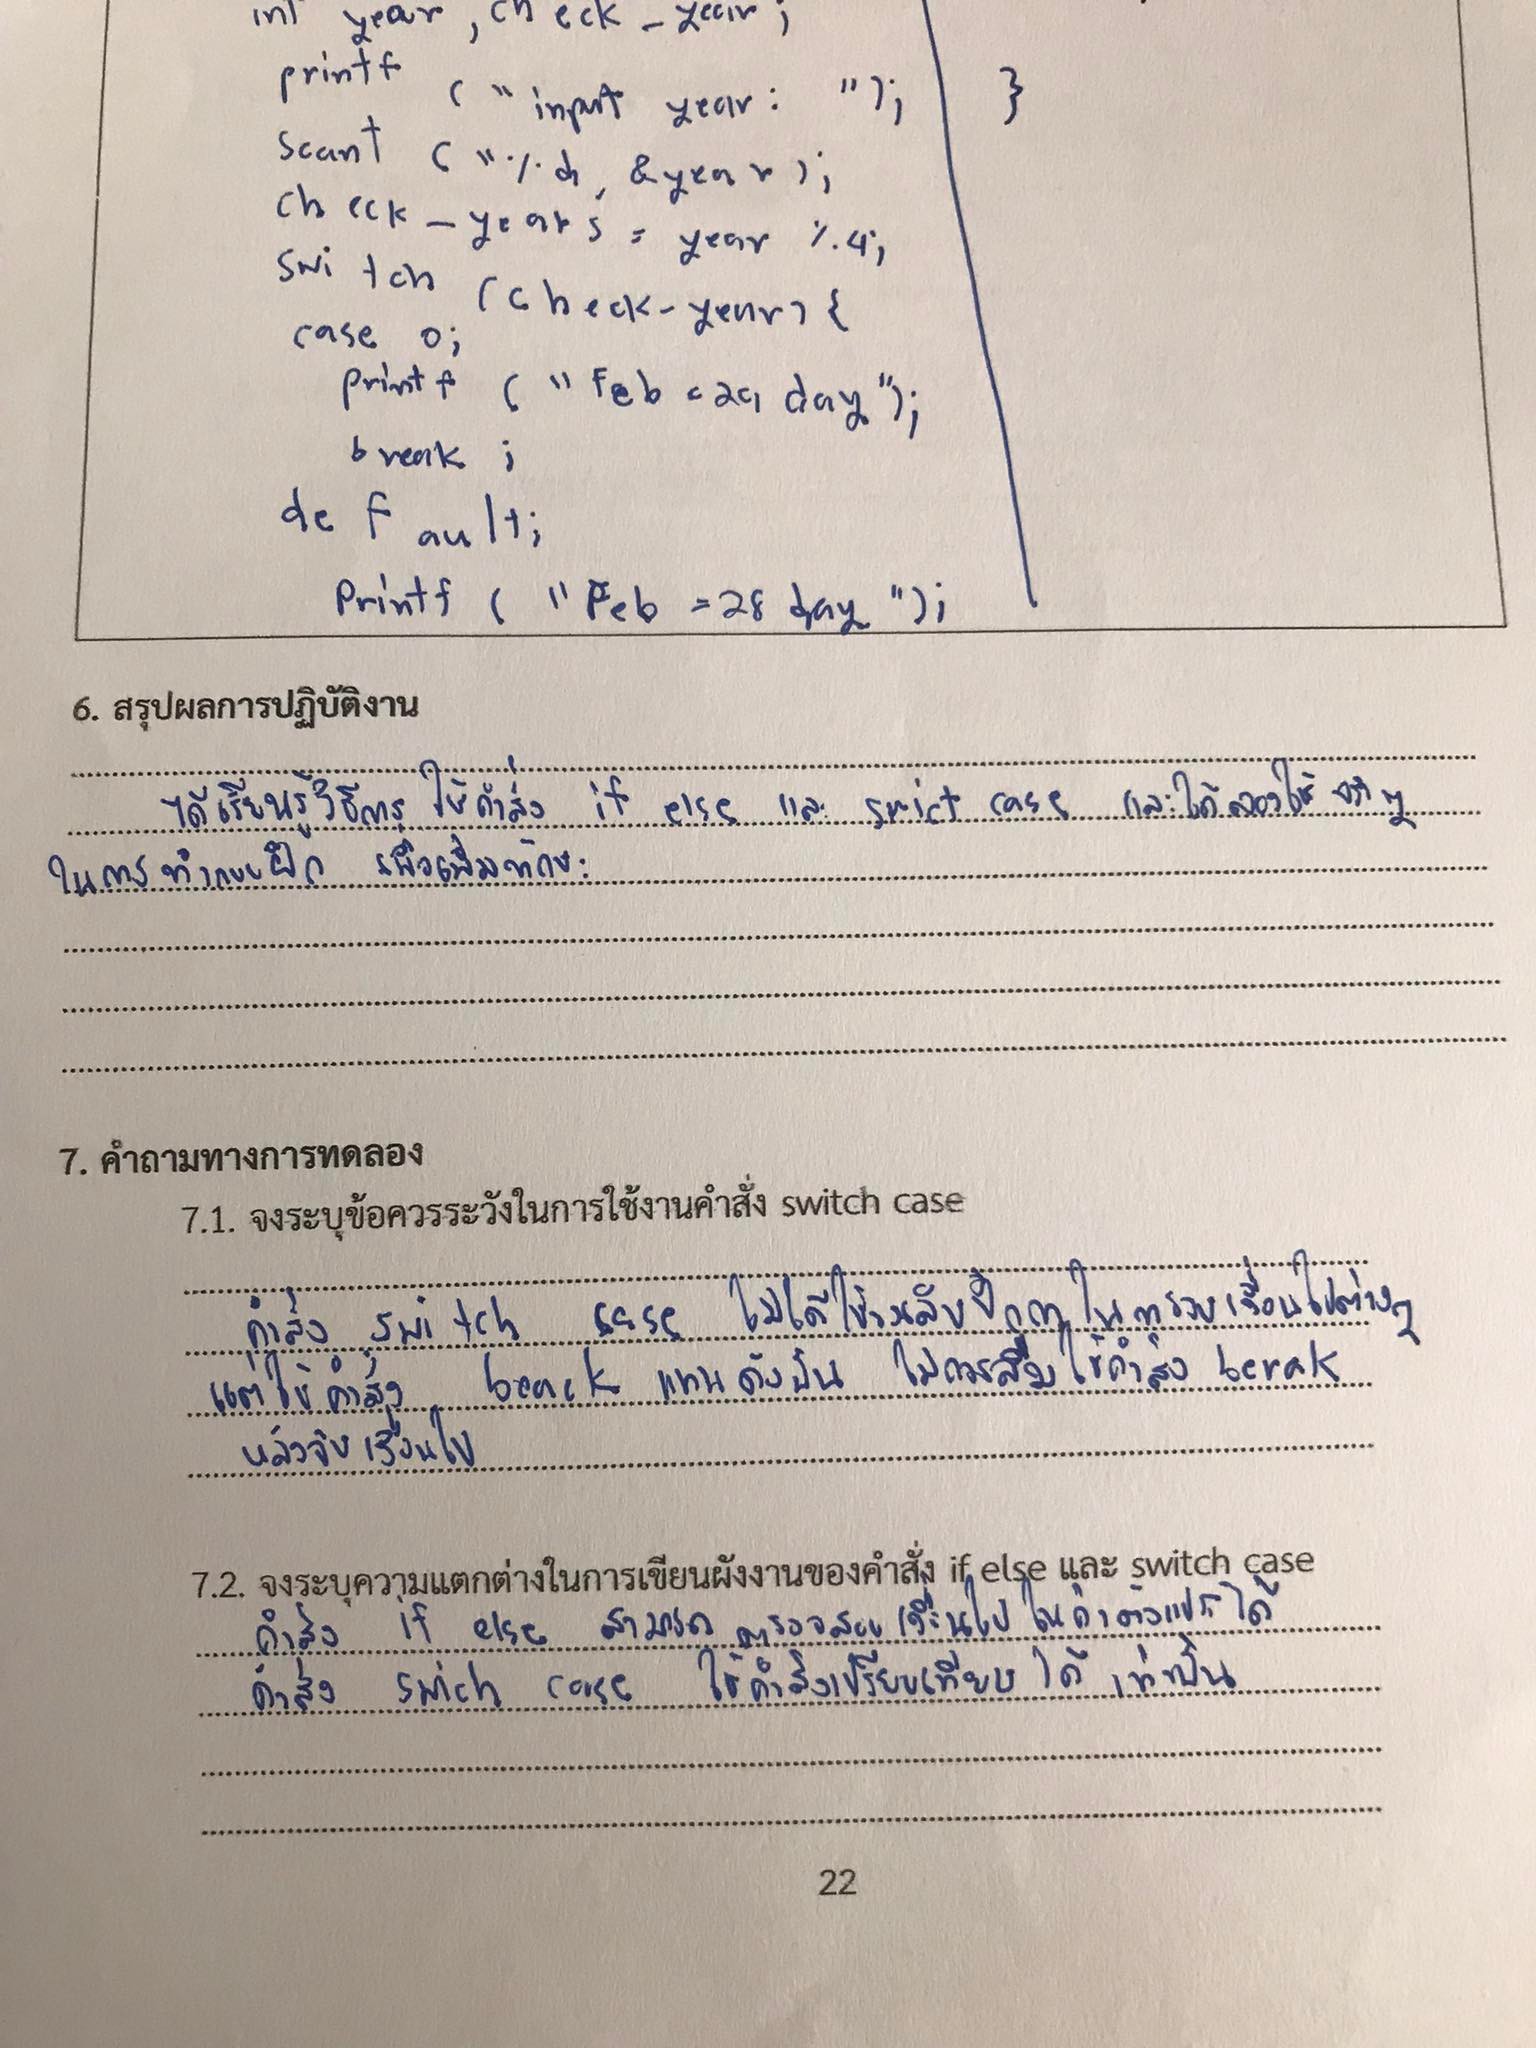 int year, check_year;
printf ( "input year: "); }
scanf ( "%d, &year);
check_years = year %4;
switch (check-year) {
case 0;
printf ( "Feb = 29 day");
break ;
default;
Printf ( "Feb = 28 day ");
6. สรุปผลการปฏิบัติงาน
ได้เรียนรู้วิธีการใช้คำสั่ง if else และ swict case และได้ลองใช้จริงๆ
ในการทำแบบฝึก เพื่อเพิ่มทักษะ
7. คำถามทางการทดลอง
7.1. จงระบุข้อควรระวังในการใช้งานคำสั่ง switch case
คำสั่ง switch case ไม่ได้ใช้วงเล็บปีกกาในการจบเงื่อนไขต่างๆ
แต่ใช้คำสั่ง beack แทน ดังนั้น ไม่ควรลืมใช้คำสั่ง berak
หลังจบเงื่อนไข
7.2. จงระบุความแตกต่างในการเขียนผังงานของคำสั่ง if else และ switch case
คำสั่ง if else สามารถตรวจสอบเงื่อนไขในค่าตัวแปรได้
คำสั่ง swich case ใช้คำสั่งเปรียบเทียบได้เท่านั้น
22